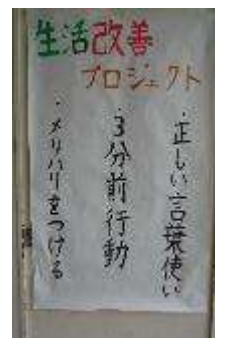 生活改善
プロジェクト
・正しい言葉使い
・3分前行動
・メリハリをつける